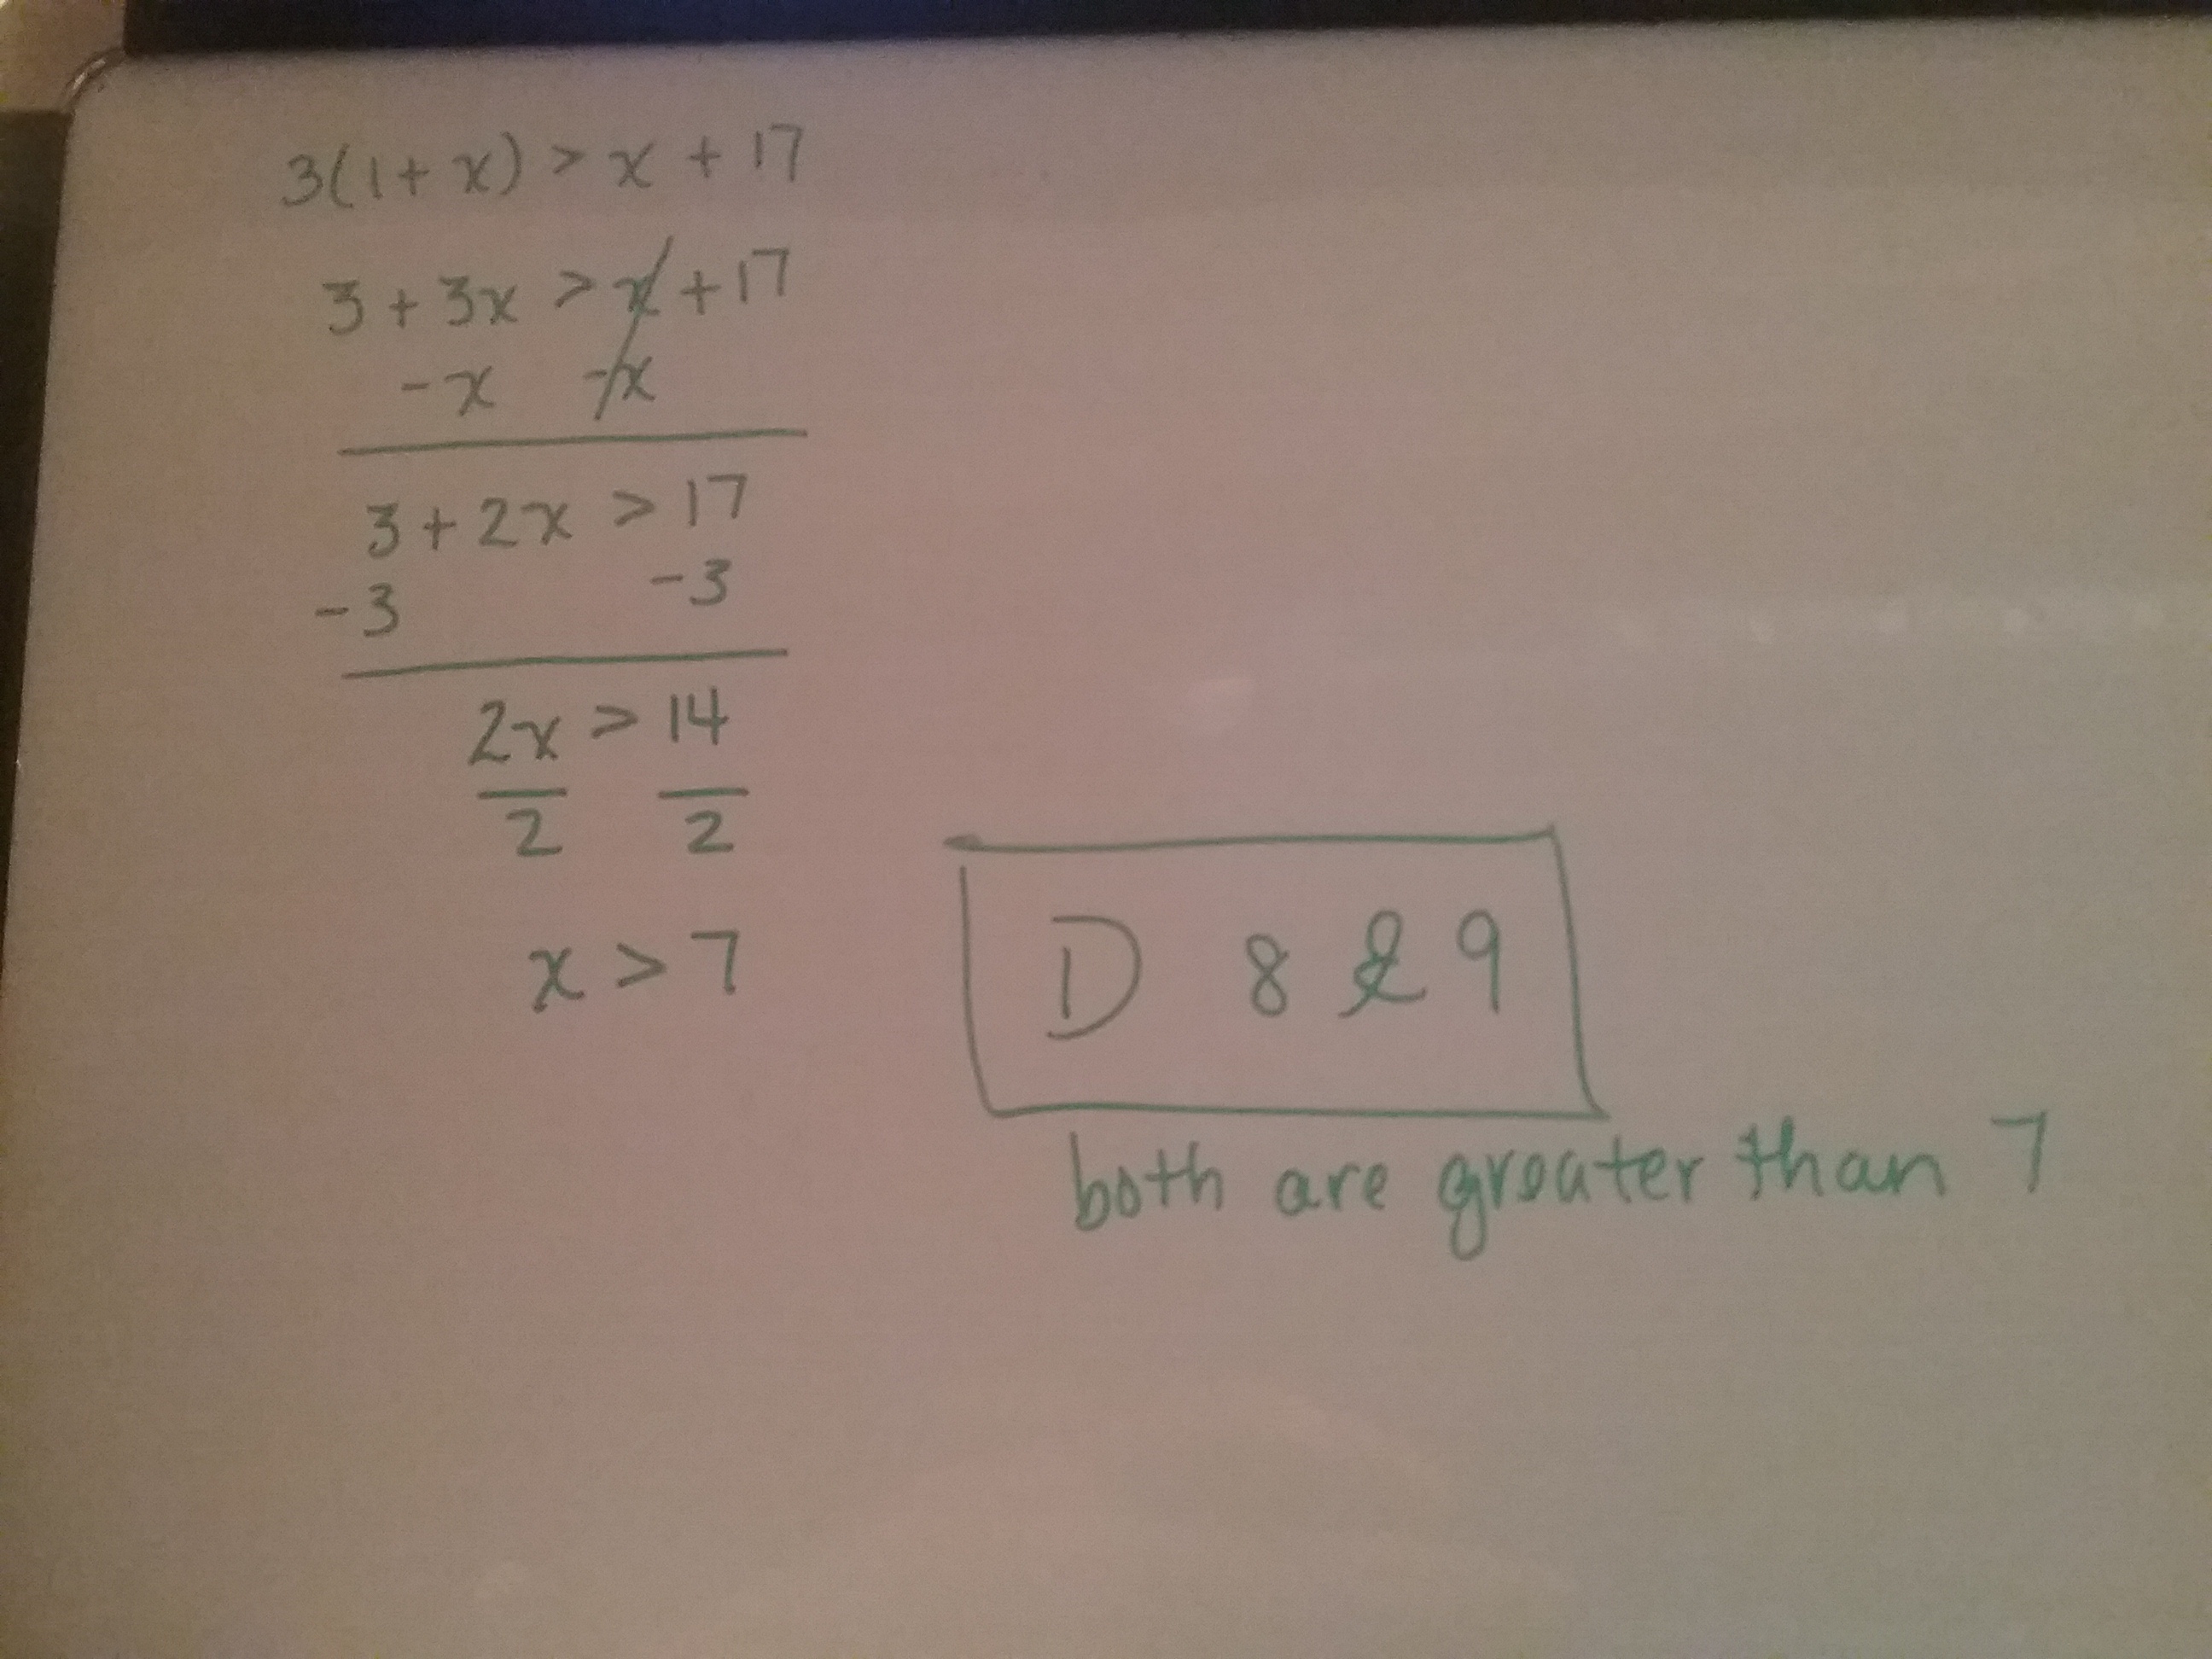 3(1+x) > x + 17
3 + 3x > x + 17
-x -x
3 + 2x > 17
-3 -3
2x > 14
2 2
x > 7
D 8 & 9
both are greater than 7